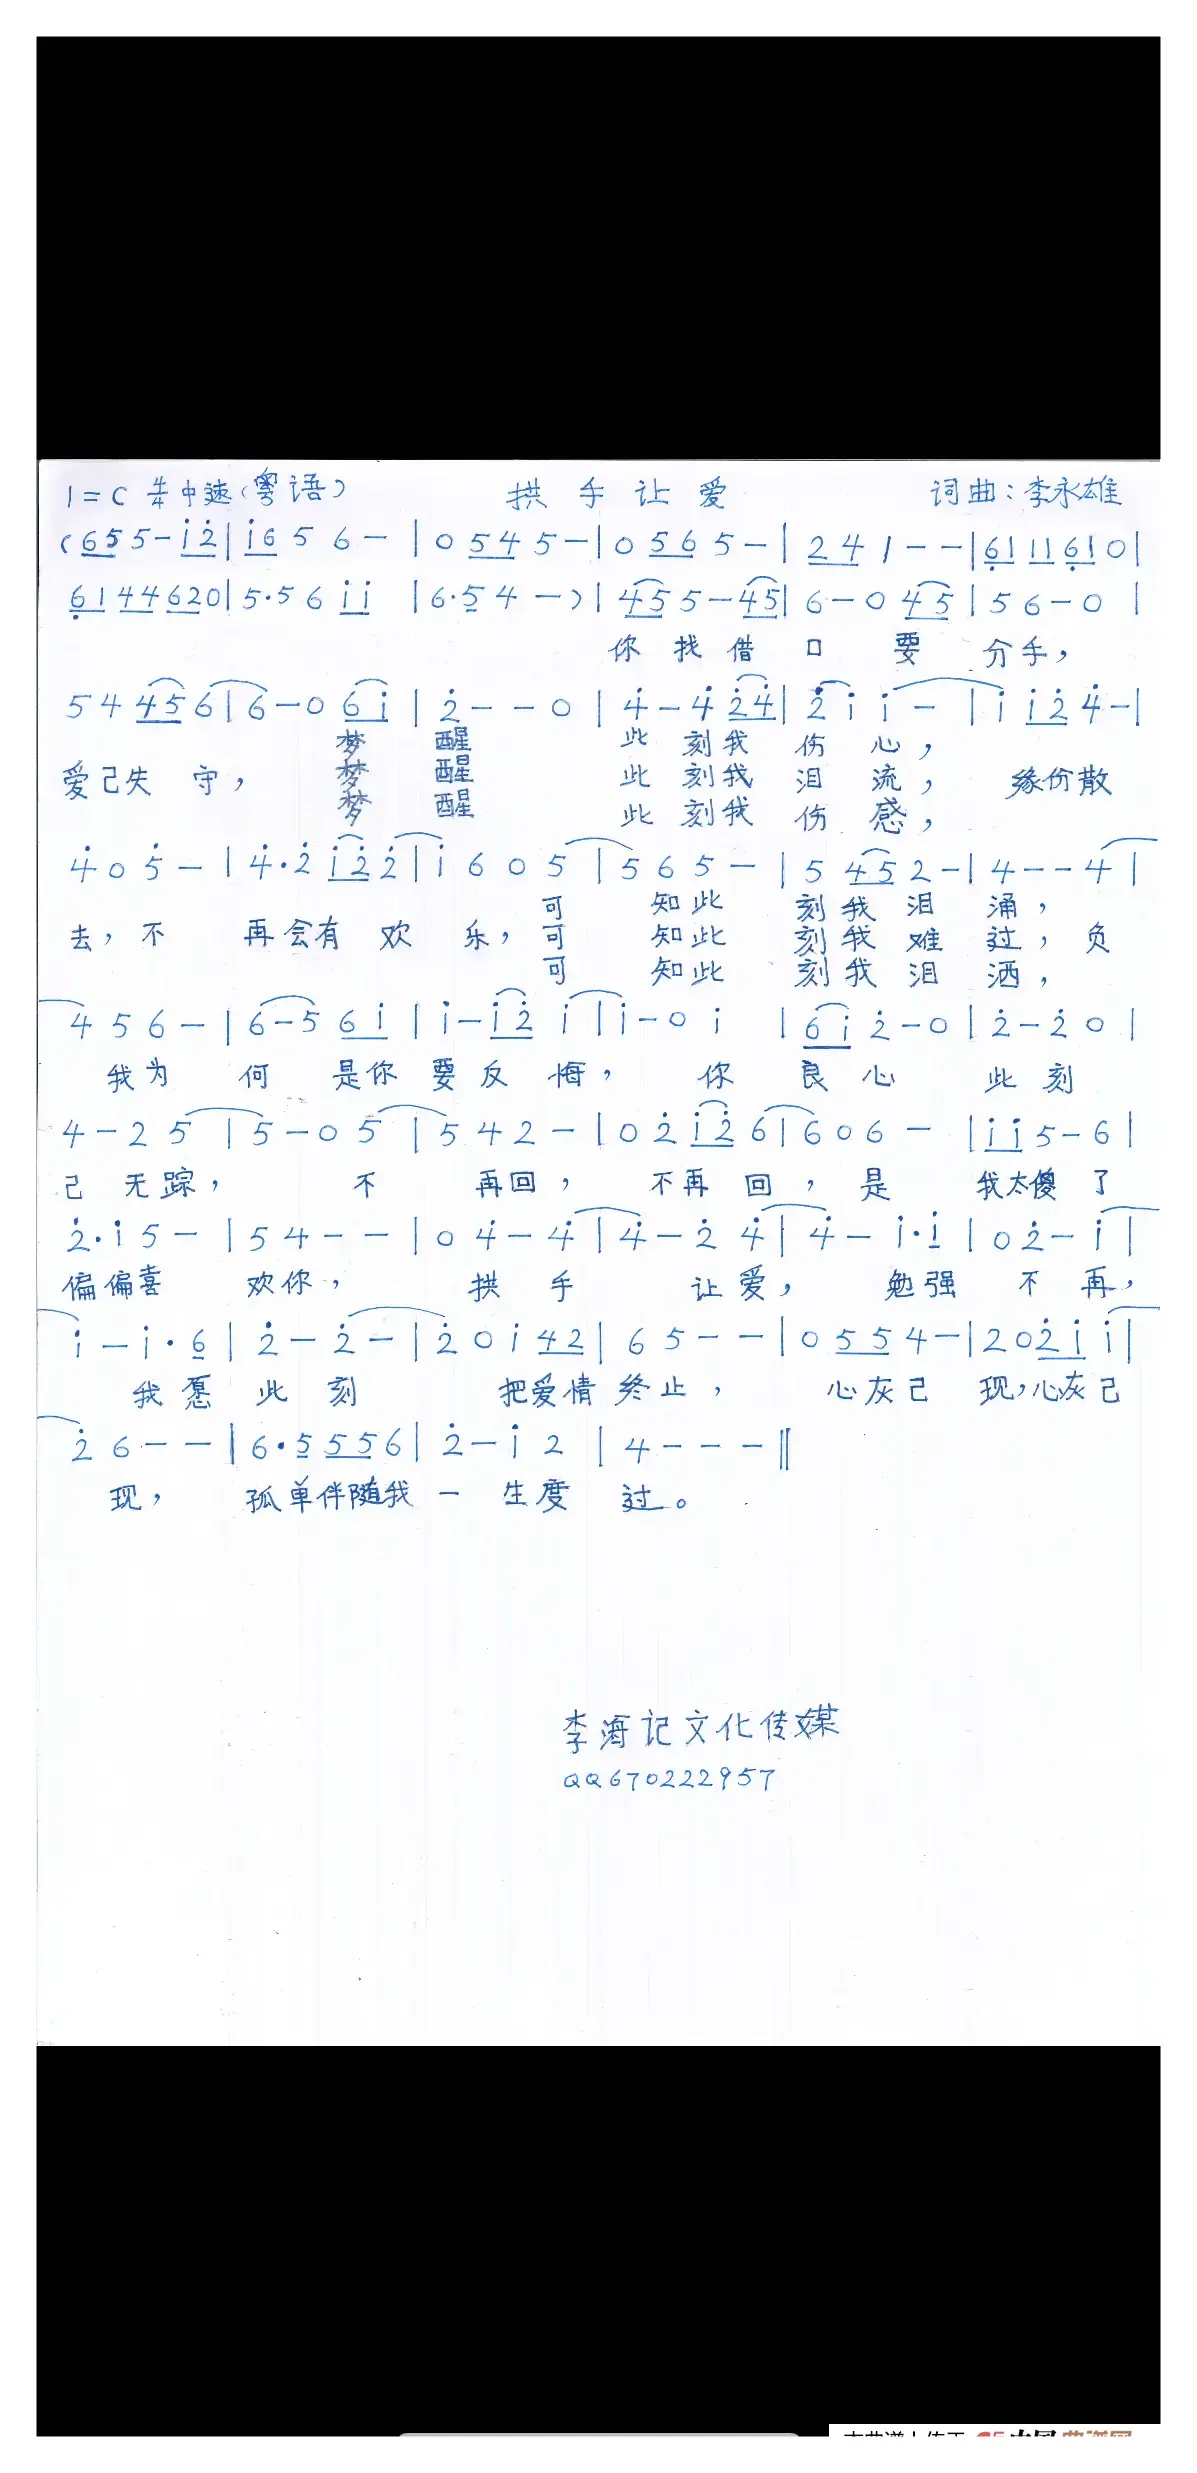 1=C 4/4 中速(粤语) 拱手让爱 词曲:李永雄
(6 5 5 - i̇ 2̇ | i̇ 6 5 6 - | 0 5 4 5 - | 0 5 6 5 - | 2 4 1 - - | 6̣ 1 1 1 6̣ 1 0 |
6̣ 1 4 4 6 2 0 | 5·5 6 i̇ i̇ | 6·5 4 -) | 4 5 5 - 4 5 | 6 - 0 4 5 | 5 6 - 0 |
你找借口要分手,
5 4 4 5 6 | 6 - 0 6 i̇ | 2̇ - - 0 | 4̇ - 4̇ 2̇ 4̇ | 2̇ i̇ i̇ - | i̇ i̇ 2̇ 4̇ - |
梦醒 此刻我伤心,
爱己失守, 梦醒 此刻我泪流, 缘份散
梦醒 此刻我伤感,
4̇ 0 5̇ - | 4̇·2̇ i̇ 2̇ 2̇ | i̇ 6 0 5 | 5 6 5 - | 5 4 5 2 - | 4 - - 4 |
可知此刻我泪涌,
去,不再会有欢乐,可知此刻我难过,负
可知此刻我泪洒,
4 5 6 - | 6 - 5 6 i̇ | i̇ - i̇ 2̇ i̇ | i̇ - 0 i̇ | 6 i̇ 2̇ - 0 | 2̇ - 2̇ 0 |
我为何是你要反悔,你良心此刻
4 - 2 5 | 5 - 0 5 | 5 4 2 - | 0 2̇ i̇ 2̇ 6 | 6 0 6 - | i̇ i̇ 5 - 6 |
己无踪,不再回,不再回,是我太傻了
2̇·i̇ 5 - | 5 4 - - | 0 4̇ - 4̇ | 4̇ - 2̇ 4̇ | 4̇ - i̇·i̇ | 0 2̇ - i̇ |
偏偏喜欢你,拱手让爱,勉强不再,
i̇ - i̇·6 | 2̇ - 2̇ - | 2̇ 0 i̇ 4 2 | 6 5 - - | 0 5 5 4 - | 2 0 2̇ i̇ i̇ |
我愿此刻把爱情终止,心灰己现,心灰己
2̇ 6 - - | 6·5 5 5 6 | 2̇ - i̇ 2 | 4 - - - ‖
现,孤单伴随我一生度过。
李海记文化传媒
QQ670222957